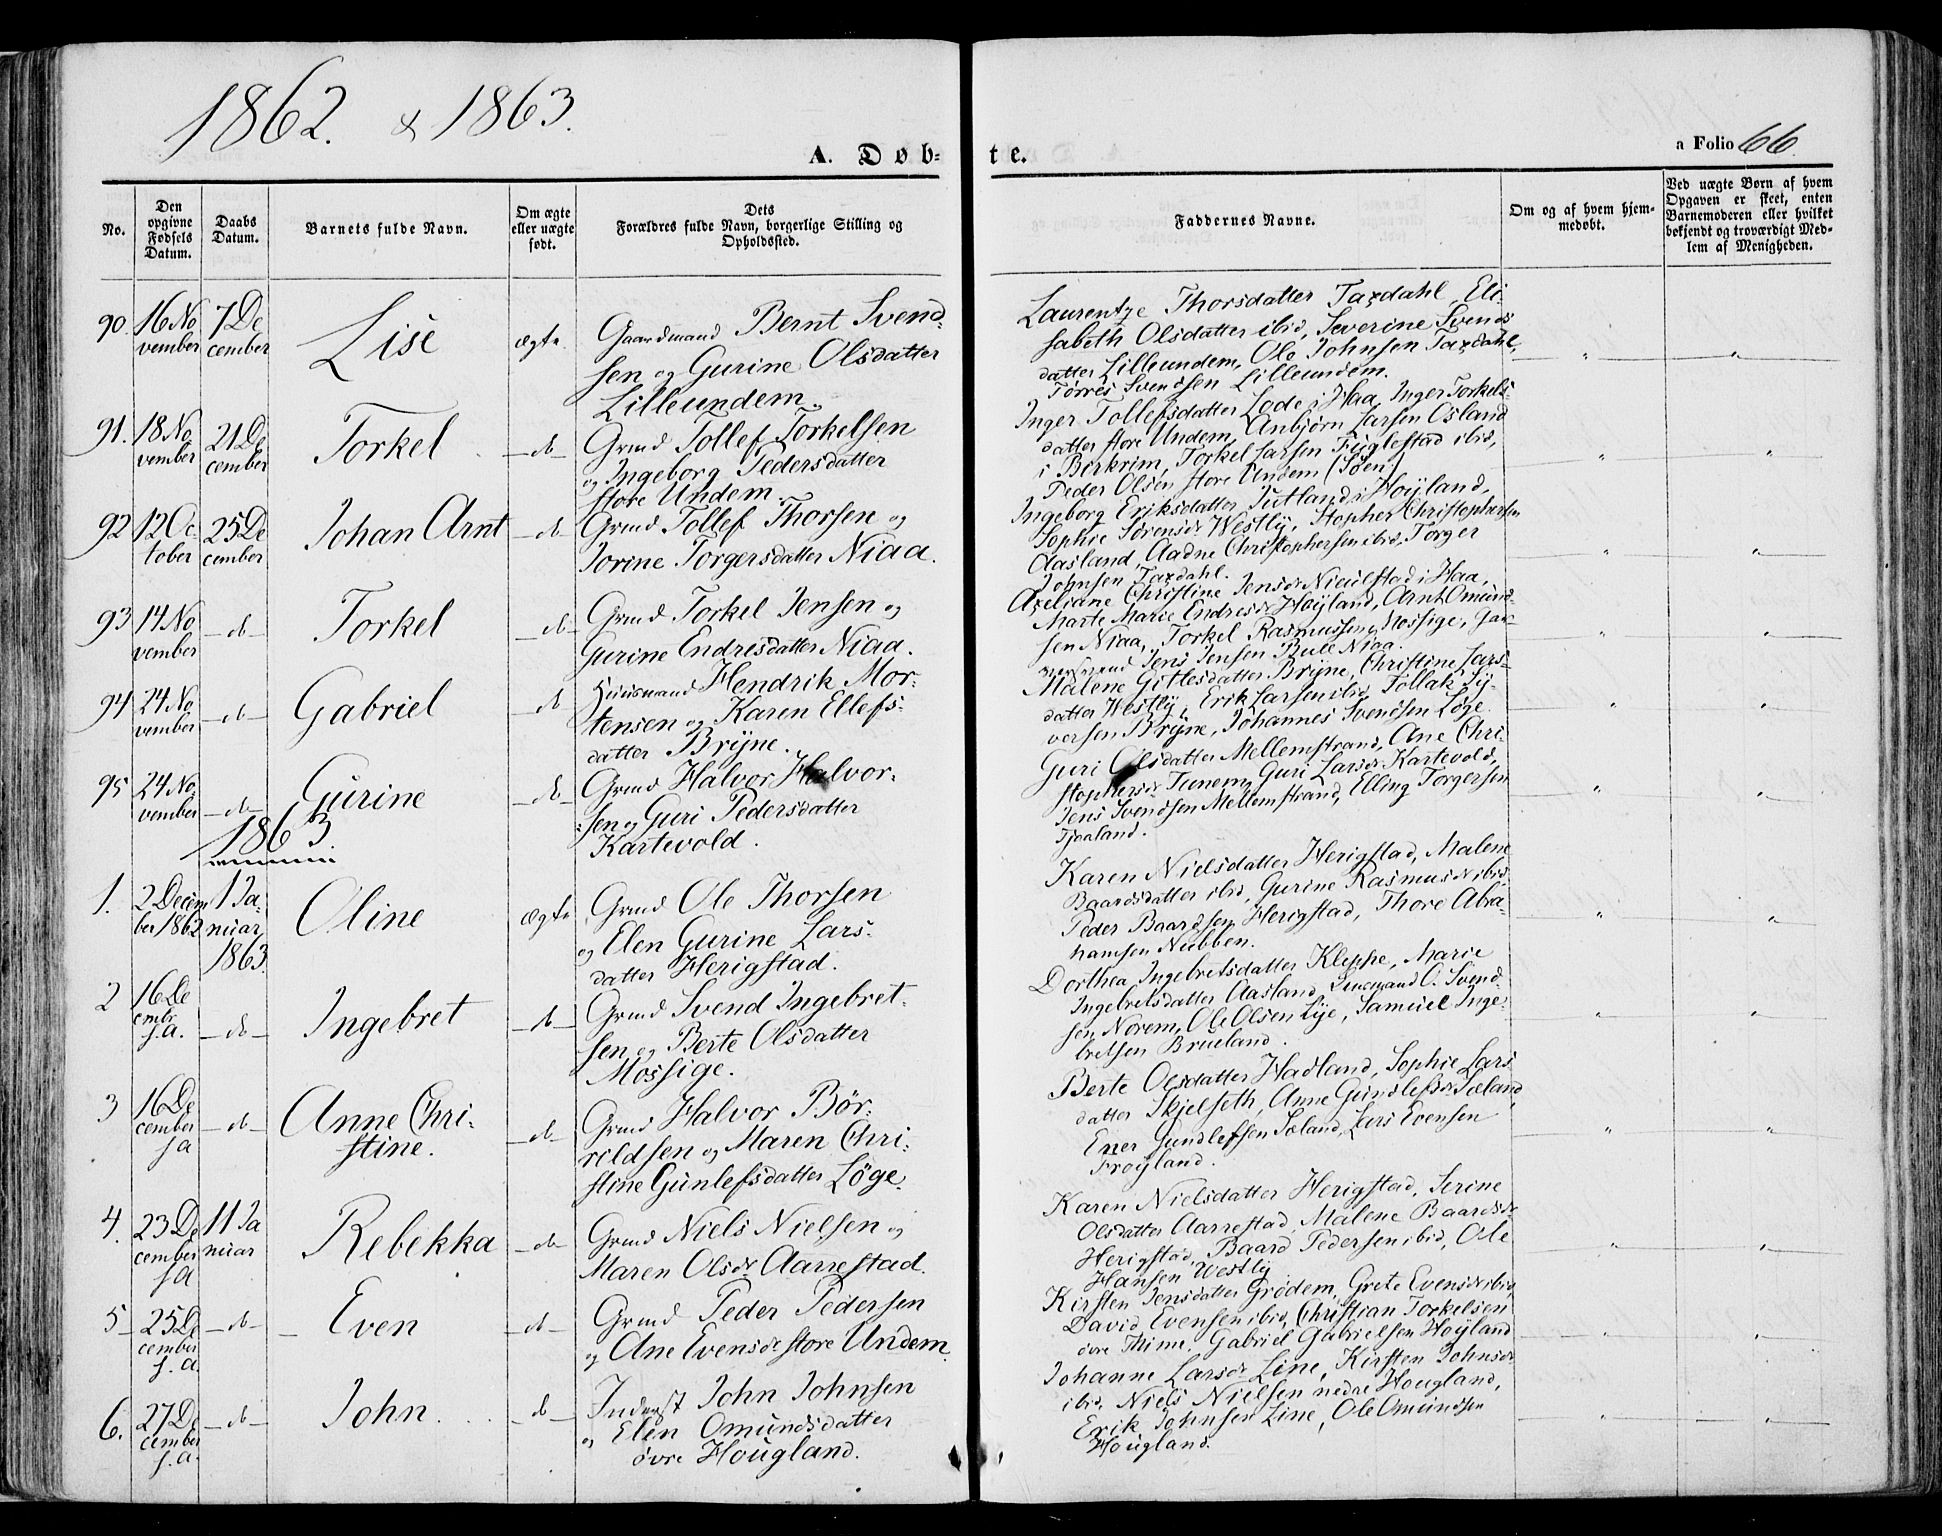 1862. & 1863.
A. Døb-
te.
a Folio 66
No.
Den
opgivne
Fødsels
Datum.
Daabs
Datum.
Barnets fulde Navn.
Om ægte
eller uægte
født.
Dets
Forældres fulde Navn, borgerlige Stilling og
Opholdssted.
Faddernes Navne.
Om og af hvem hjem-
medøbt.
Ved uægte Børn af hvem
Opgaven er skeet, enten
Barnemoderen eller hvilket
bekjendt og troværdigt Med-
lem af Menigheden.
90. 16 No
vember
7 De
cember
Lise
ægte
Gaardmand Bernt Svend-
sen og Gurine Olsdatter
Lilleundem.
Laurentze Thorsdatter Taxdahl, Eli-
sabeth Olsdatter ibid, Severine Svends
datter Lilleundem, Ole Johnsen Taxdahl,
Tørres Svendsen Lilleundem.
91. 18 No
vember
21 De
cember
Torkel
-do-
Grmd Tollef Torkelsen
og Ingeborg Pedersdatter
store Undem.
Inger Tollefsdatter Lode i Haa, Inger Torkels-
datter store Undem, Anbjørn Larsen Osland
i Birkrim, Torkel Larsen Fuglestad ibid,
Peder Olsen store Undem (Søen)
92 12 Oc
tober
25 De
cember
Johan Arnt
-do-
Grmd Tollef Thorsen og
Jorine Torgersdatter Niaa.
Ingeborg Eriksdatter Jutland i Høyland,
Sophie Sørensdr Westly, Stopher Christophersen
Aasland, Aadne Christophersen ibid, Torger
Johnsen Taxdahl.
93 14 No
vember
-do-
Torkel
-do-
Grmd Torkel Jensen og
Gurine Endresdatter Niaa.
Axeliane Christine Jensdr Niaulstad i Haa,
Marte Marie Endresdr Høyland, Arnt Omund-
sen Niaa, Torkel Rasmussen Mossige, Gar-
Jens Jensen Bull Niaa.
94 24 No
vember
-do-
Gabriel
-do
Huusmand Hendrik Mor-
tensen og Karen Ellefs-
datter Bryne.
Malene Gitlesdatter Bryne, Christine Lars-
datter Westly, Erik Larsen ibid, Tollak Sy-
versen Bryne, Johannes Svendsen Løge.
95 24 No
vember
-do-
Gurine
-do-
Grmd Halvor Halvor-
sen og Guri Pedersdatter
Kartevold.
Guri Olsdatter Mellemstrand, Ane Chri-
stophersdr Tunem, Guri Larsdr Kartevold,
Jens Svendsen Mellemstrand, Elling Torgersen
Tjaaland.
1863
1. 2 Decem
ber 1862
1 Ja-
nuar
1863
Oline
ægte
Grmd Ole Thorsen
og Elen Gurine Lars-
datter Herigstad.
Karen Nielsdatter Herigstad, Malene
Baardsdatter ibid, Gurine Rasmusdr ibid,
Peder Baardsen Herigstad, Thore Abra-
hamsen Nubben.
2 16 De
cembr
s.a.
-do-
Ingebret
-do-
Grmd Svend Ingebret-
sen og Berte Olsdatter
Mossige.
Dorthea Ingebretsdatter Kleppe, Marie
Ingebretsdatter Aasland, O. Svend-
sen Norem, Ole Olsen Lye, Samuel Inge-
bretsen Brueland.
3 16 De
cember
s a
-do-
Anne Chri-
stine.
-do-
Grmd Halvor Bør-
rildsen og Maren Chri-
stine Gunlefsdatter Løge.
Berte Olsdatter Hadland, Sophie Lars
datter Skjelseth, Anne Gundlefsdr Sæland,
Ener Gundlefsen Sæland, Lars Evensen
Frøyland.
4. 23 De
cember
s a
11 Ja
nuar
Rebekka
-do-
Grmd Niels Nielsen og
Maren Olsdr Aarrestad.
Karen Nielsdatter Herigstad, Serine
Olsdatter Aarrestad, Malene Baardsdr
Herigstad, Baard Pedersen ibid, Ole
Hansen Westly
5- 25 De
cember
s. a.
-do-
Even
-do-
Grmd Peder Pedersen
og Ane Evensdr store Undem.
Kirsten Jensdatter Grødem, Grete Evensdr ibid,
David Evensen ibid, Christian Torkelsen
øvre Thime, Gabriel Gabrielsen Høyland
6. 27 De
cember
s. a.
-do-
John.
-do-
Inderst John Johnsen
og Elen Omundsdatter
øvre Hougland.
Johanne Larsdr Line, Kirsten Johnsdr
ibid, Niels Nielsen nedre Hougland,
Erik Johnsen Line, Ole Omundsen
Hougland.